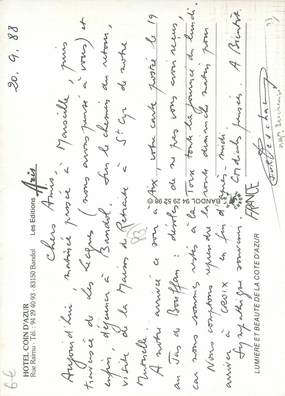 20.9.88
Chers Amis,
Aujourd'hui matinée passée à Marseille puis
traversée de Les Lecques (nous avons pensé à vous) et
enfin, déjeuner à Bandol. Sur le chemin du retour,
visite de la Maison de Retraite à St Cyr de notre
Mutuelle.
A notre arrivée ce soir à Aix, votre carte postée le 19
au Jas de Bouffan : désolés de ne pas vous avoir reçus,
car nous sommes restés à la Torse toute la journée du lundi.
Nous comptons reprendre la route demain matin pour
arriver à CROIX en fin d'après-midi.
Sympathique souvenir et Cordiales pensées. A Bientôt.
Les Editions Aris
HOTEL COIN D'AZUR
Rue Raimu - Tél. : 94 29 40 93 - 83150 Bandol
BANDOL 94 29 52 98 ©
LUMIERE ET BEAUTE DE LA COTE D'AZUR
(83)
6€